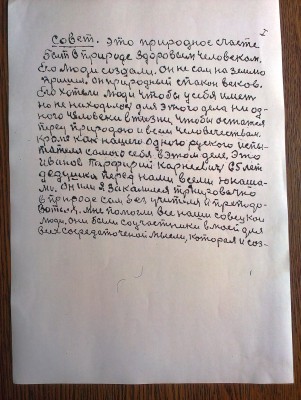 1
Совет. Это природное счастье
быть в природе здоровым человеком.
Его люди создали. Он не сам на землю
пришел. Он природный стакон веков.
Его хотели люди чтобы у себя иметь
но не находилось для этого дела ни од-
ного человека в жизни, чтобы остался
перед природою и всем человечеством.
кроме как нашего одного руского испы-
тателя самого себя в этом деле. Это
Иванов Парфирий Карнеевич 65 лет
дедушка перед нами всеми юноша-
ми. Он шел закалялся тринеровочно
в природе сам без учителя и преподо-
вателя. Мне помогли все наши совецкие
люди, они были соучастники в моей для
всех сосредоточеной мысли, которая и соз-